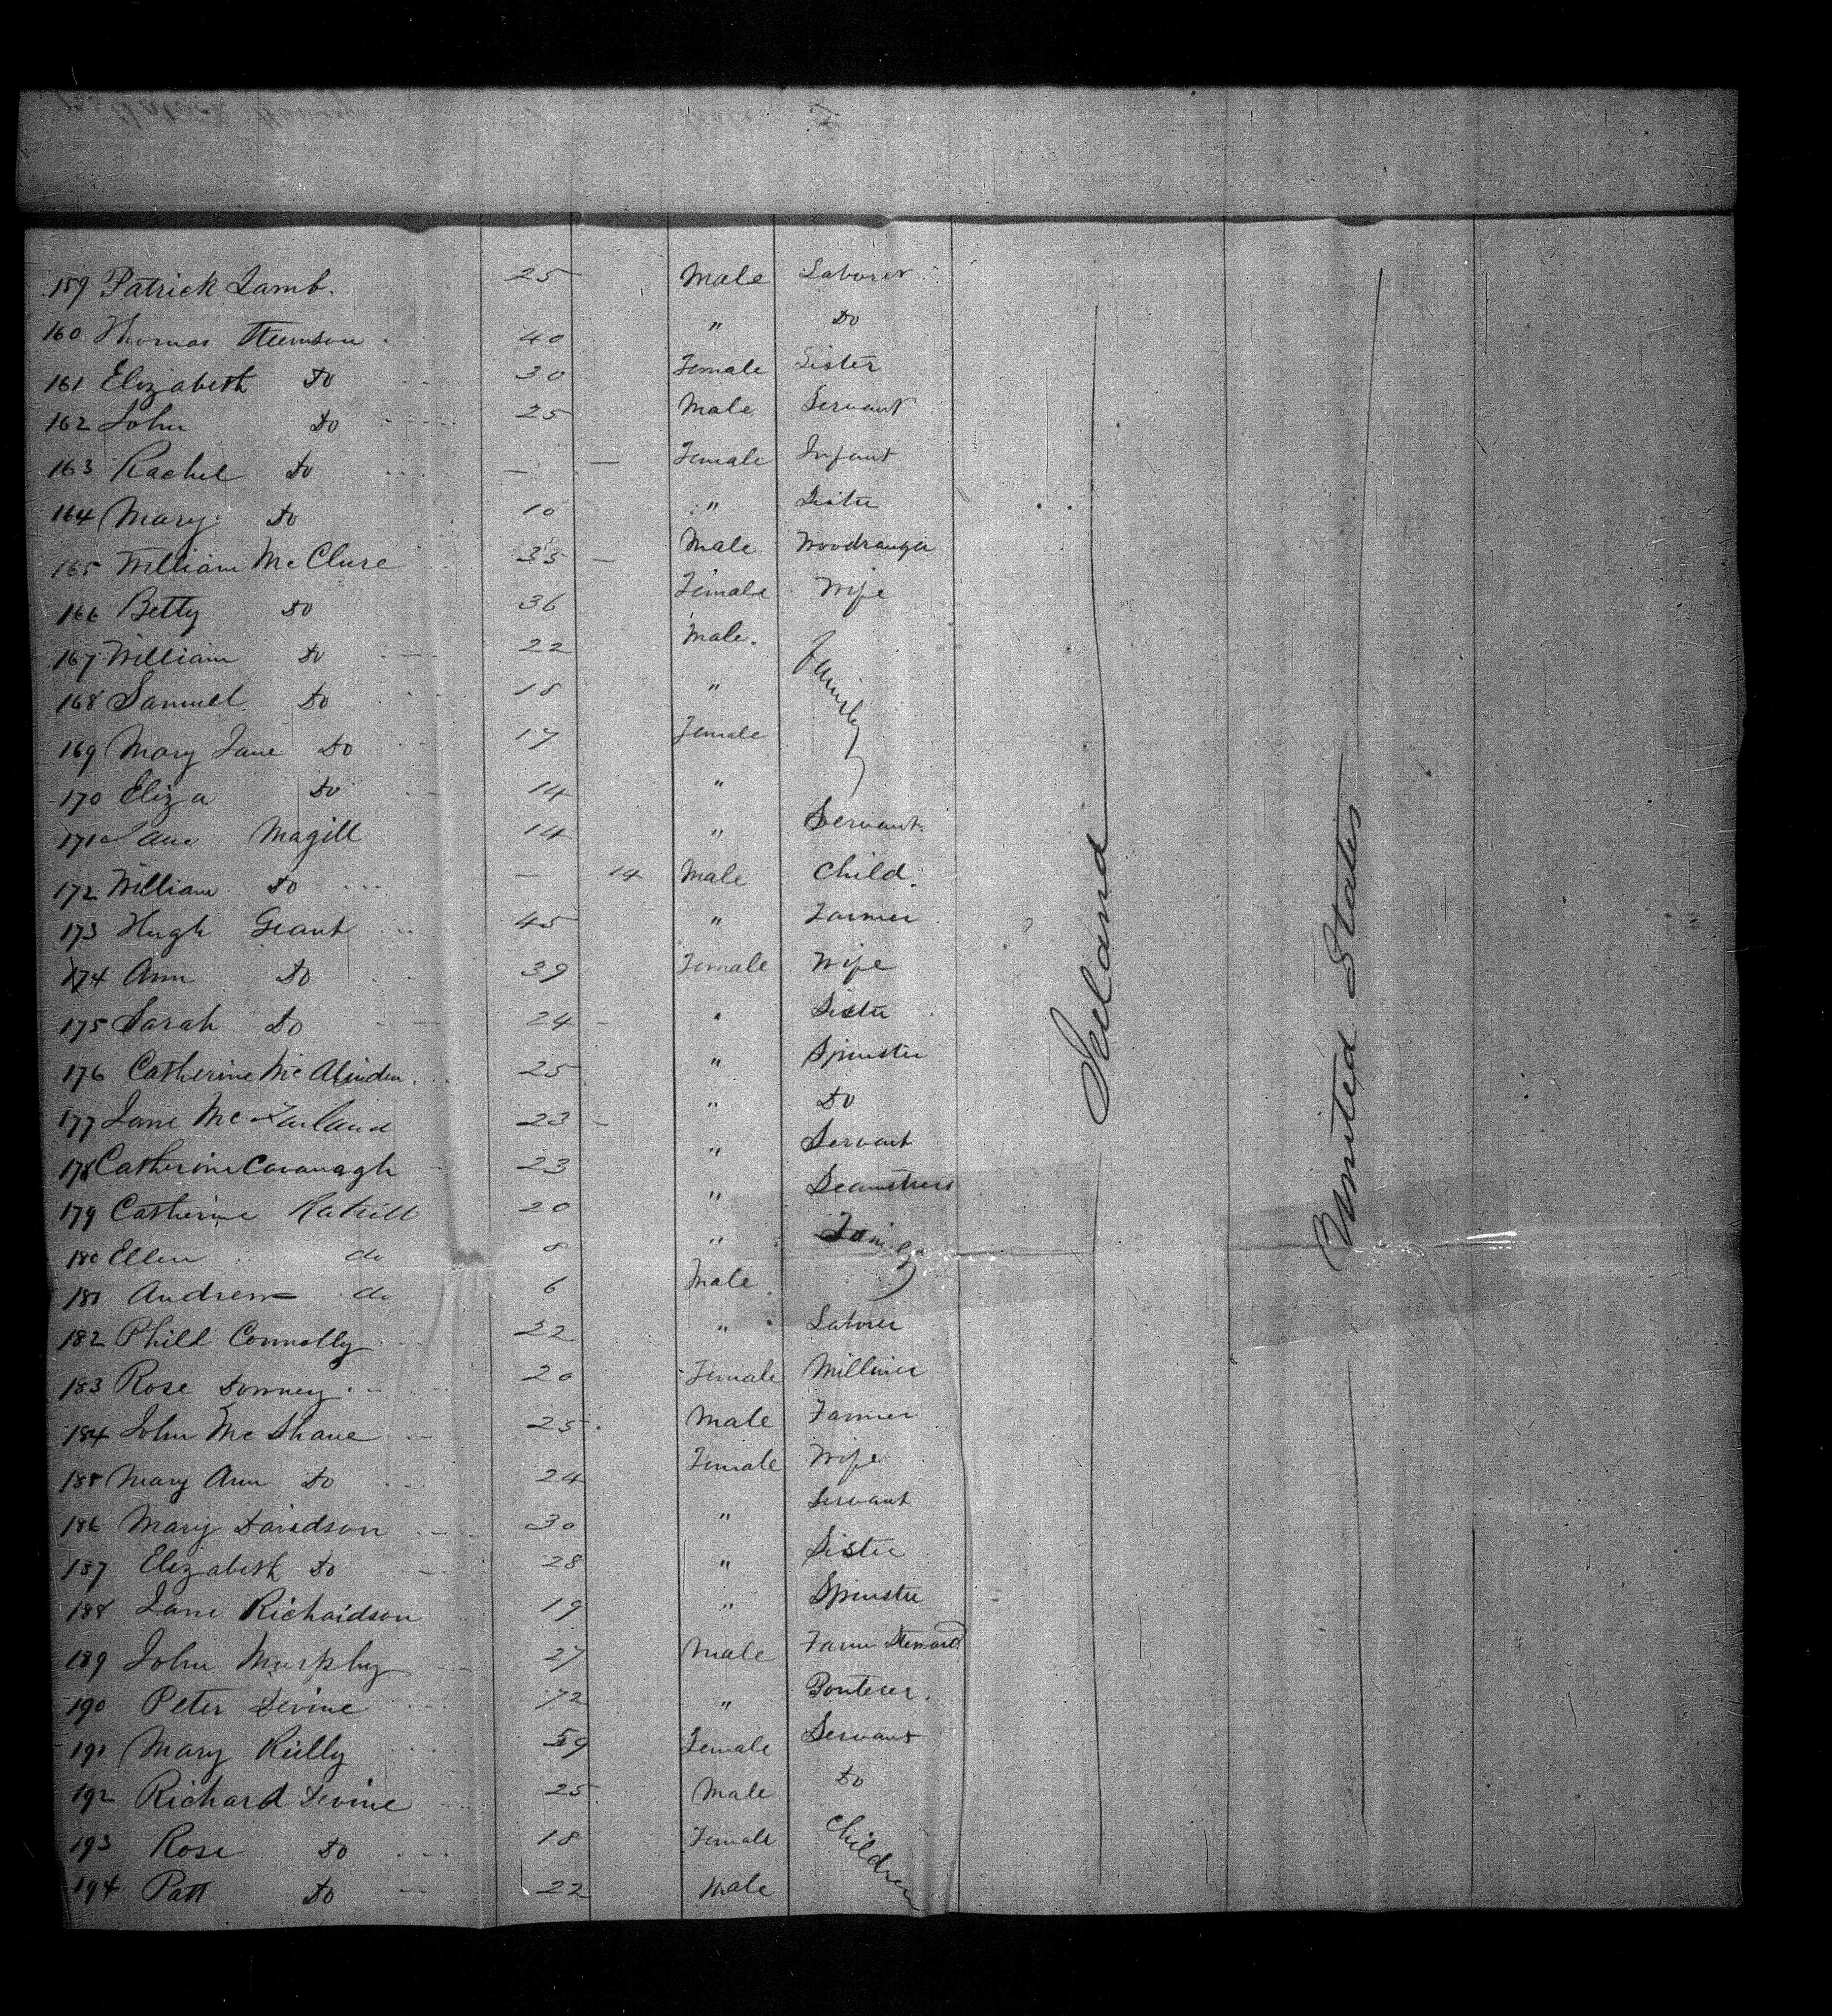 159 Patrick Lamb. 25 Male Laborer
160 Thomas 40 " Do
161 Elizabeth Do 30 Female Sister
162 John Do 25 Male Servant
163 Rachel Do — — Female Infant
164 Mary Do 10 " Sister
165 William McClure 35 — Male Woodranger
166 Betty Do 36 Female Wife
167 William Do 22 Male. Family
168 Samuel Do 18 "
169 Mary Jane Do 17 Female
170 Eliza Do 14 "
171 Jane Magill 14 " Servant
172 William Do — 14 Male Child
173 Hugh Grant 45 " Farmer
174 Ann Do 39 Female Wife
175 Sarah Do 24 " Sister
176 Catherine McAlinden 25 " Spinster
177 Jane McFarland 23 " Do
178 Catherine Cavanagh 23 " Servant
179 Catherine 20 " Seamstress
180 Ellen do 8 " Family
181 Andrew do 6 Male
182 Phill Connolly 22 " Laborer
183 Rose Downey 20 Female Milliner
184 John McShane 25 Male Farmer
185 Mary Ann Do 24 Female Wife
186 Mary Davidson 30 " Servant
187 Elizabeth Do 28 " Sister
188 Jane Richardson 19 " Spinster
189 John Murphy 27 Male Farm Steward
190 Peter Devine 72 "
191 Mary Reilly 59 Female Servant
192 Richard Devine 25 Male Do
193 Rose Do 18 Female Children
194 Patt Do 22 Male
Ireland
United States